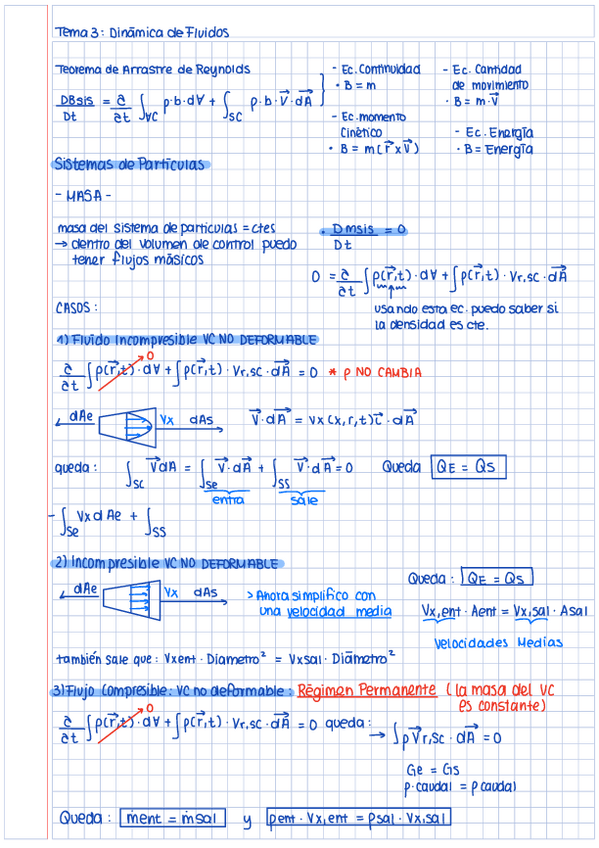 Tema 3: Dinámica de Fluidos
Teorema de Arrastre de Reynolds
DBsis/Dt = ∂/∂t ∫VC ρ·b·d∀ + ∫SC ρ·b·V⃗·dA⃗ }
- Ec. Continuidad
• B = m
- Ec. Cantidad
de movimiento
• B = m·V⃗
- Ec. momento
Cinético
• B = m(r⃗ x V⃗)
- Ec. Energía
• B = Energía
Sistemas de Partículas
- MASA -
masa del sistema de partículas = ctes
→ dentro del volumen de control puedo
tener flujos másicos
• Dmsis/Dt = 0
0 = ∂/∂t ∫ρ(r⃗,t)·d∀ + ∫ρ(r⃗,t)·Vr,sc·dA⃗
usando esta ec. puedo saber si
la densidad es cte.
CASOS:
1) Fluido Incompresible VC NO DEFORMABLE
∂/∂t ∫ρ(r⃗,t)·d∀ + ∫ρ(r⃗,t)·Vr,sc·dA⃗ = 0 * ρ NO CAMBIA
0
dAe Vx dAs V⃗·dA⃗ = Vx(x,r,t)i⃗·dA⃗
queda: ∫SC V⃗dA = ∫Se V⃗·dA⃗ + ∫SS V⃗·dA⃗ = 0 Queda QE = QS
entra sale
- ∫Se Vx dAe + ∫SS
2) Incompresible VC NO DEFORMABLE
dAe Vx dAs
> Ahora simplifico con
una velocidad media
Queda: QE = QS
Vx,ent · Aent = Vx,sal · Asal
Velocidades Medias
también sale que: Vxent · Diametro² = Vxsal · Diámetro²
3) Flujo Compresible: VC no deformable: Régimen Permanente (la masa del VC
es constante)
∂/∂t ∫ρ(r⃗,t)·d∀ + ∫ρ(r⃗,t)·Vr,sc·dA⃗ = 0 queda:
0
→ ∫ρV⃗r,sc·dA⃗ = 0
Ge = Gs
ρ·caudal = ρ caudal
Queda: ṁent = ṁsal y ρent·Vx,ent = ρsal·Vx,sal